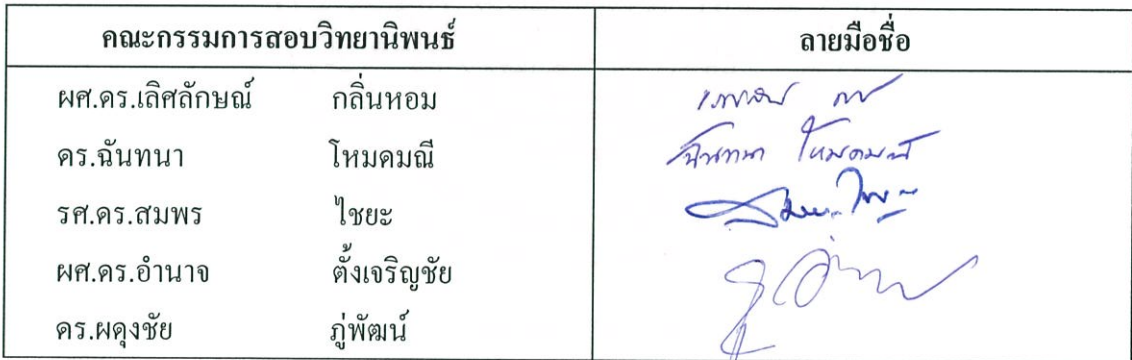 คณะกรรมการสอบวิทยานิพนธ์ ลายมือชื่อ
ผศ.ดร.เลิศลักษณ์ กลิ่นหอม
ดร.ฉันทนา โหมดมณี ฉันทนา โหมดมณี
รศ.ดร.สมพร ไชยะ
ผศ.ดร.อำนาจ ตั้งเจริญชัย
ดร.ผดุงชัย ภู่พัฒน์